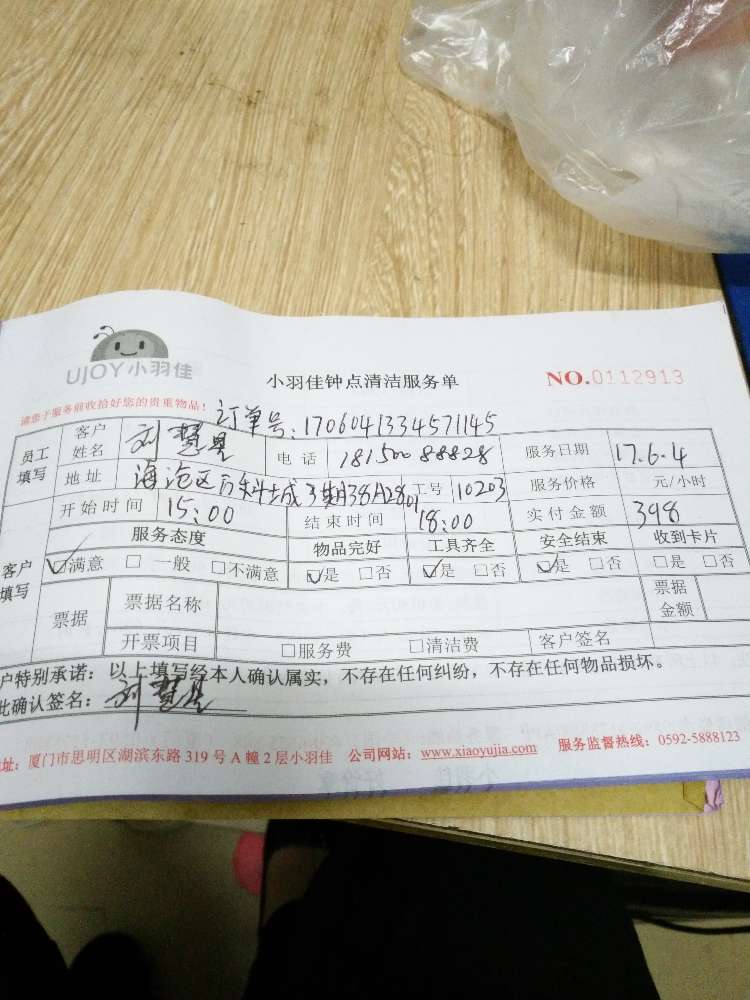 UJOY小羽佳
小羽佳钟点清洁服务单
NO.0112913
请您于服务前收拾好您的贵重物品!
订单号:1706041334571145
员工填写 客户姓名 刘慧星 电话 18150088828 服务日期 17.6.4
地址 海沧区万科城3期38A2801 工号 10203 服务价格 元/小时
开始时间 15:00 结束时间 18:00 实付金额 398
客户填写 服务态度 物品完好 工具齐全 安全结束 收到卡片
☑满意 □一般 □不满意 ☑是 □否 ☑是 □否 ☑是 □否 □是 □否
票据 票据名称 票据金额
开票项目 □服务费 □清洁费 客户签名
户特别承诺:以上填写经本人确认属实,不存在任何纠纷,不存在任何物品损坏。
此确认签名:刘慧星
址:厦门市思明区湖滨东路319号A幢2层小羽佳 公司网站:www.xiaoyujia.com 服务监督热线:0592-5888123